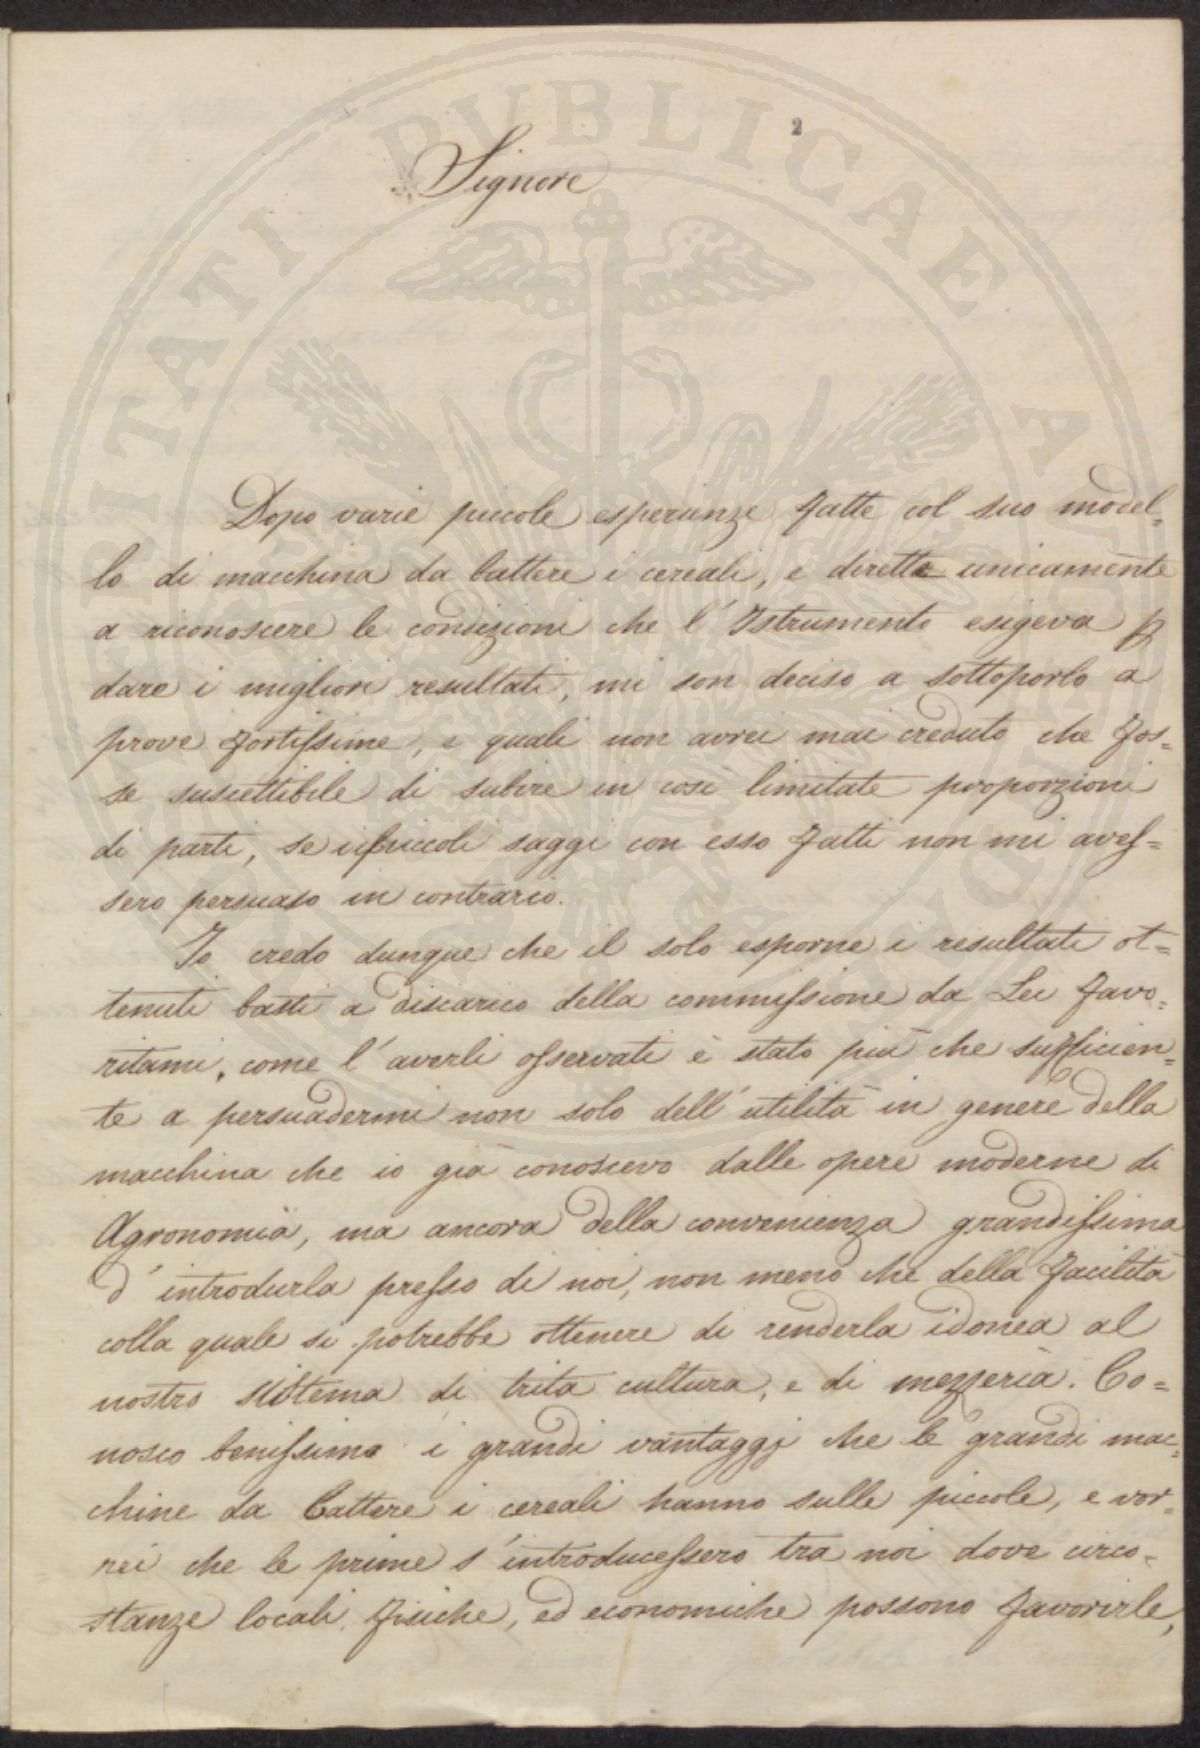 2
Signore
Dopo varie piccole esperienze fatte col suo model=
lo di macchina da battere i cereali, e dirette unicamente
a riconoscere le condizioni che l'Istrumento esigeva p
dare i migliori resultati, mi son deciso a sottoporlo a
prove fortissime, e quali non avrei mai creduto che fos=
se suscettibile di subire in così limitate proporzioni
di parti, se i piccoli saggi con esso fatti non mi aves=
sero persuaso in contrario.
Io credo dunque che il solo esporne i resultati ot=
tenuti basti a discarico della commissione da Lei favo=
ritami, come l'averli osservati è stato più che sufficien=
te a persuadermi non solo dell'utilità in genere della
macchina che io già conoscevo dalle opere moderne di
Agronomia, ma ancora della convenienza grandissima
d'introdurla presso di noi, non meno che della facilità
colla quale si potrebbe ottenere di renderla idonea al
nostro sistema di trita cultura, e di mezzeria. Co=
nosco benissimo i grandi vantaggi che le grandi mac=
chine da battere i cereali hanno sulle piccole, e vor=
rei che le prime s'introducessero tra noi dove circo=
stanze locali, fisiche, ed economiche possono favorirle,
PUBLICAE